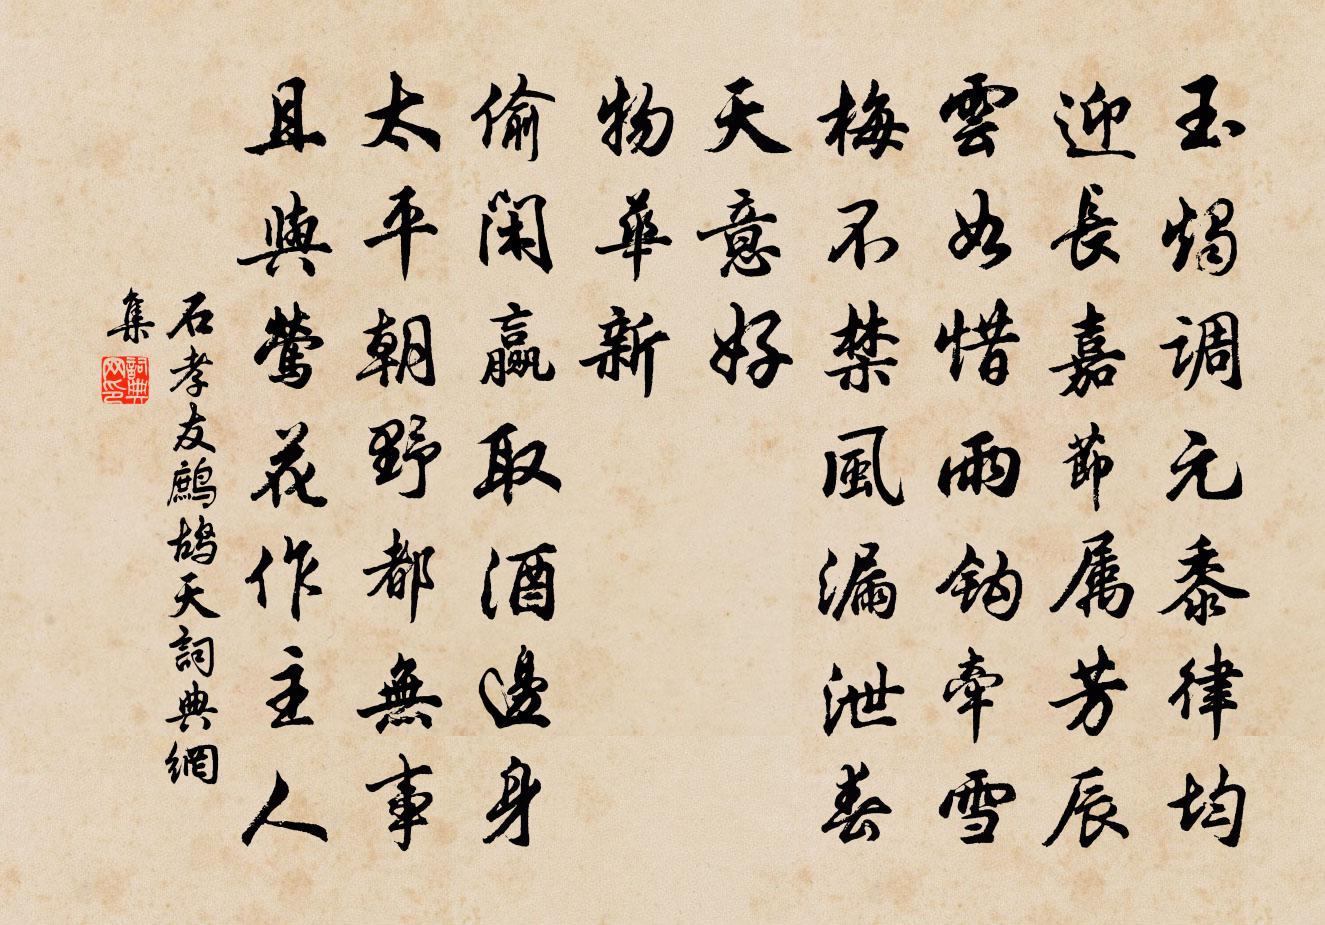 玉燭調元黍律均
迎長嘉節属芳辰
雲如惜雨鈎牽雪
梅不禁風漏泄春
天意好
物華新
偷閑贏取酒邊身
太平朝野都無事
且與鶯花作主人
石孝友鷓鴣天詞典網
集
詞典
网印